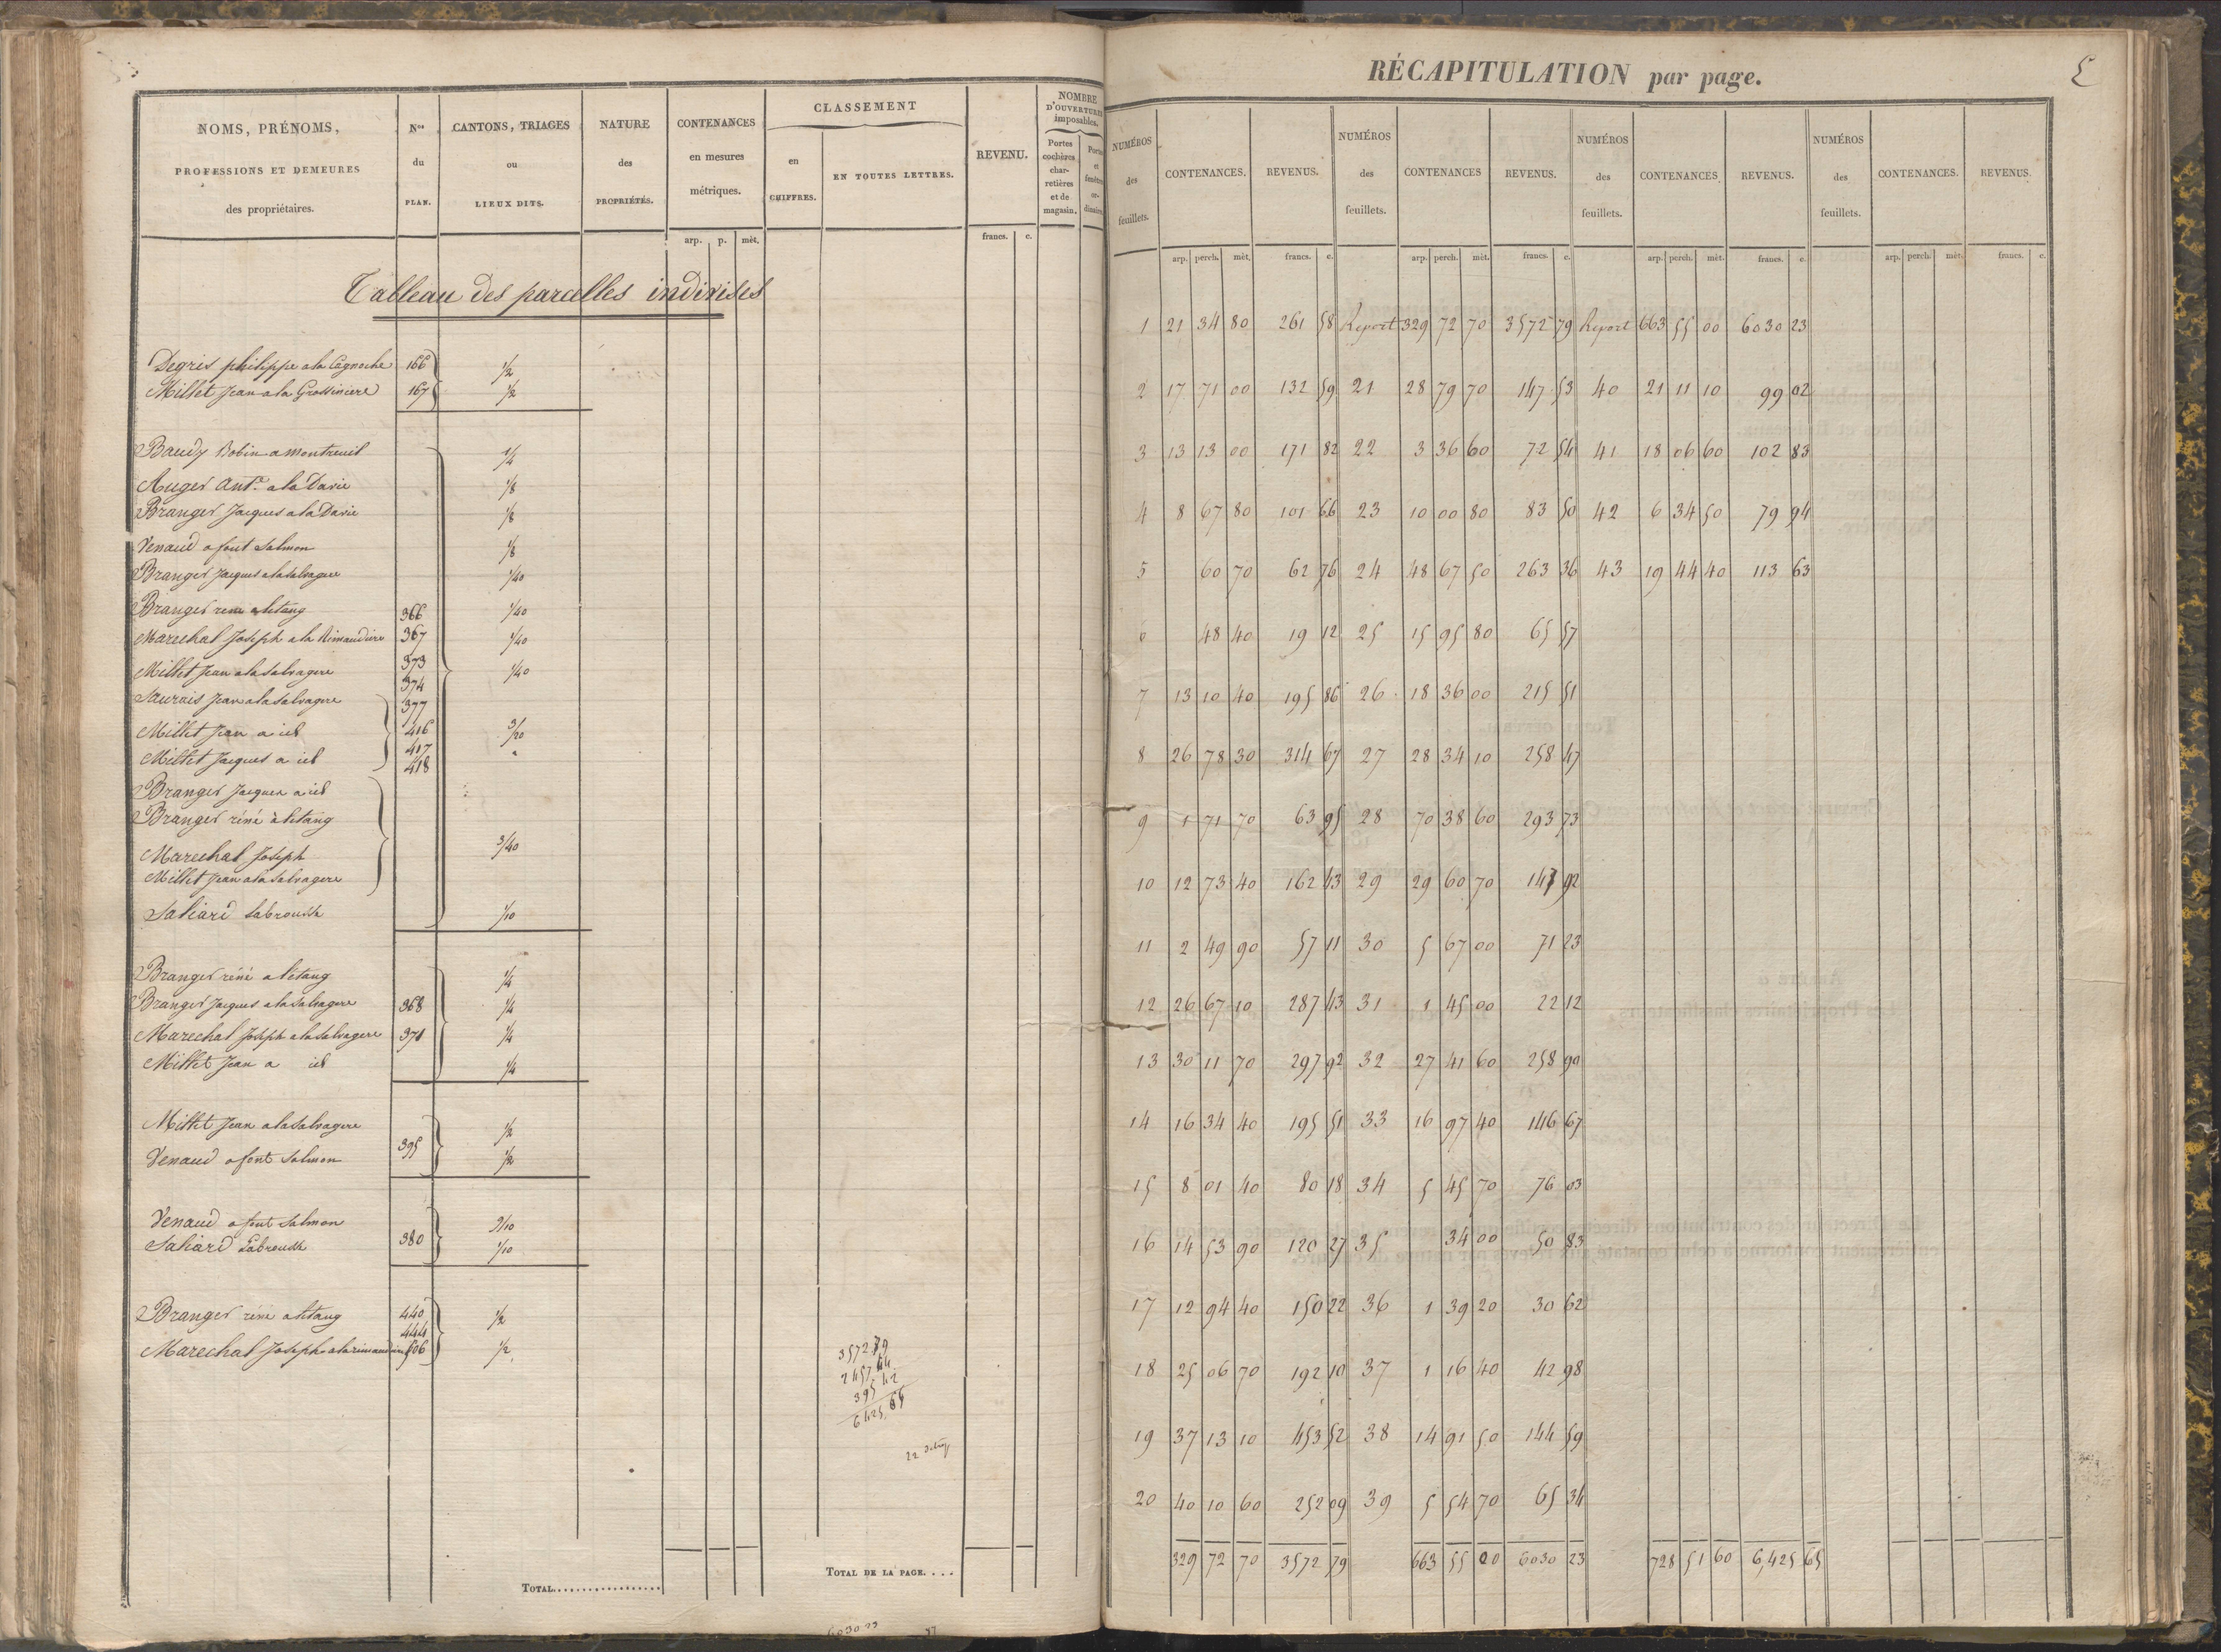 NOMS, PRÉNOMS,
PROFESSIONS ET DEMEURES
des propriétaires.
Nos
du
PLAN.
CANTONS, TRIAGES
ou
LIEUX DITS.
NATURE
des
PROPRIÉTÉS.
CONTENANCES
en mesures
métriques.
CLASSEMENT
en
CHIFFRES.
EN TOUTES LETTRES.
REVENU.
NOMBRE
D'OUVERTURES
imposables.
Portes
cochères
char-
retières
et de
magasin.
Portes
et
fenêtres
or-
dinaires
arp. p. mèt. francs. c.
Tableau des parcelles indivises
Degris philippe a la Cagnoche 166 1/2
Millet Jean a la Grossiniere 167 1/2
Baudy Robin a montreuil 1/4
Auger Ant.e a la Davie 1/8
Branger Jacques a la Davie 1/8
Venaud a font Salmon 1/8
Branger Jacques a la Salvagere 1/40
Branger rene a letang 366 1/40
Marechal Joseph a la Rimaudiere 367 1/40
Millet Jean a la Salvagere 373 1/40
374
Saurais Jean a la Salvagere 377
Millet Jean a id 416 3/20
417
Millet Jacques a id 418 "
Branger Jacques a id
Branger réné à létang
Marechal Joseph 3/40
Millet Jean a la Salvagere
Saliard Labrousse 1/10
Branger réné a létang 1/4
Branger Jacques a la Salvagere 368 1/4
Marechal Joseph a la Salvagere 371 1/4
Millet Jean a id 1/4
Millet Jean a la Salvagere 1/2
395
Venaud a font Salmon 1/2
Venaud a font Salmon 9/10
380
Saliard Labrousse 1/10
Branger réné a létang 440 1/2
444
Marechal Joseph a la rimaudiere 506 1/2
3572.79
2457.44
395 42
6425,65
TOTAL..................
TOTAL DE LA PAGE....
6030 23
RÉCAPITULATION par page.
NUMÉROS
des
feuillets.
CONTENANCES.
REVENUS.
NUMÉROS
des
feuillets.
CONTENANCES
REVENUS.
NUMÉROS
des
feuillets.
CONTENANCES
REVENUS.
NUMÉROS
des
feuillets.
CONTENANCES.
REVENUS.
arp. perch. mèt. francs. c. arp. perch. mèt. francs. c. arp. perch. mèt. francs. c. arp. perch. mèt. francs. c.
1 21 34 80 261 58 Report 329 72 70 3572 79 Report 663 55 00 6030 23
2 17 71 00 132 59 21 28 79 70 147 53 40 21 11 10 99 02
3 13 13 00 171 82 22 3 36 60 72 54 41 18 06 60 102 83
4 8 67 80 101 66 23 10 00 80 83 50 42 6 34 50 79 94
5 60 70 62 76 24 48 67 50 263 36 43 19 44 40 113 63
6 48 40 19 12 25 15 95 80 65 57
7 13 10 40 195 86 26 18 36 00 215 51
8 26 78 30 314 67 27 28 34 10 258 47
9 1 71 70 63 95 28 70 38 60 293 73
10 12 73 40 162 43 29 29 60 70 147 92
11 2 49 90 57 11 30 5 67 00 71 23
12 26 67 10 287 43 31 1 45 00 22 12
13 30 11 70 297 92 32 27 41 60 258 90
14 16 34 40 195 51 33 16 97 40 146 67
15 8 01 40 80 18 34 5 45 70 76 03
16 14 53 90 120 27 35 34 00 50 83
17 12 94 40 150 22 36 1 39 20 30 62
18 25 06 70 192 10 37 1 16 40 42 98
19 37 13 10 453 52 38 14 91 50 144 59
20 40 10 60 252 09 39 5 54 70 65 34
329 72 70 3572 79 663 55 00 6030 23 728 51 60 6,425 65